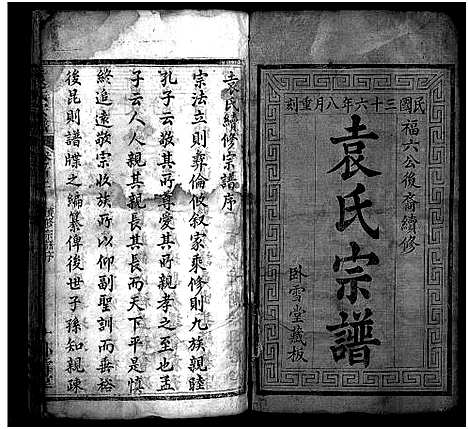 民國三十六年八月重刻
福六公後裔續修
袁氏宗譜
臥雪堂藏板
袁氏續修宗譜序
宗法立則彝倫攸叙家乘修則九族親睦
孔子云敬其所尊愛其所親孝之至也孟
子云人人親其親長其長而天下平是慎
終追遠敬宗收族所以仰副聖訓而垂裕
後昆則譜牒之編纂俾後世子孫知親疎